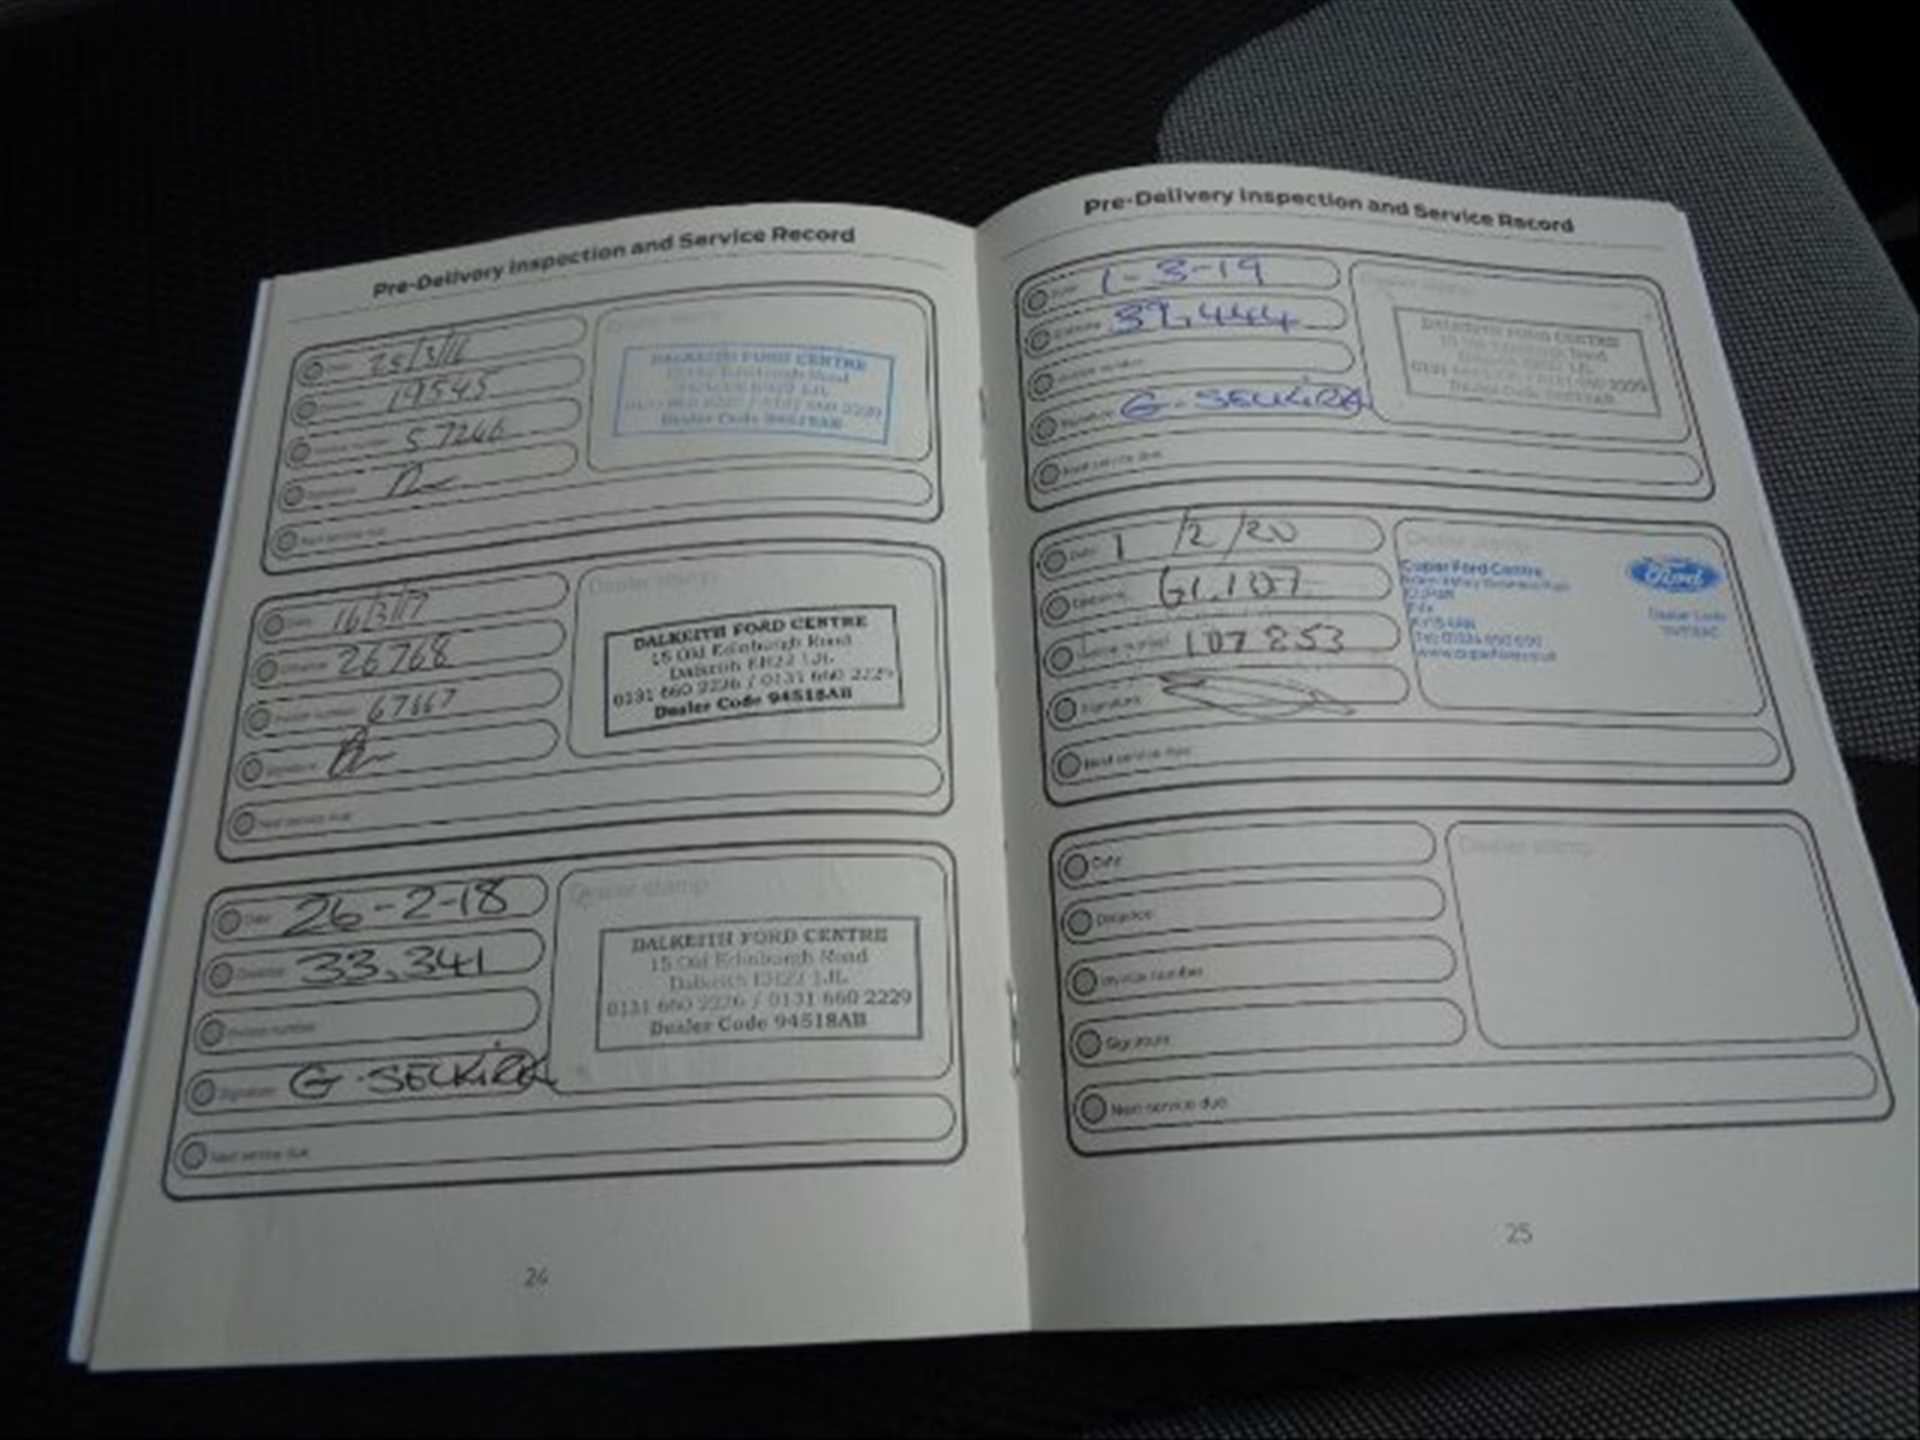 Pre-Delivery Inspection and Service Record
Date 25/3/16
19545
Invoice number 57246
Signature
Next service due
Dealer stamp
DALKEITH FORD CENTRE
15 Old Edinburgh Road
Dalkeith EH22 1JL
0131 660 2226 / 0131 660 2229
Dealer Code 94518AB
Date 16/3/17
Distance 26768
Invoice number 67667
Signature
Next service due
Dealer stamp
DALKEITH FORD CENTRE
15 Old Edinburgh Road
Dalkeith EH22 1JL
0131 660 2226 / 0131 660 2229
Dealer Code 94518AB
Date 26-2-18
Distance 33,341
Invoice number
Signature G. SELKIRK
Next service due
Dealer stamp
DALKEITH FORD CENTRE
15 Old Edinburgh Road
Dalkeith EH22 1JL
0131 660 2226 / 0131 660 2229
Dealer Code 94518AB
24
Pre-Delivery Inspection and Service Record
Date 1-3-19
Distance 39,444
Invoice number
Signature G. SELKIRK
Next service due
Dealer stamp
DALKEITH FORD CENTRE
15 Old Edinburgh Road
0131 660 2226 / 0131 660 2229
Dealer Code 94518AB
Date 1/2/20
Distance 61,107
Invoice number 107853
Signature
Next service due
Dealer stamp
Cupar Ford Centre
CUPAR
Fife
Ford
Dealer Code
Date
Distance
Invoice number
Signature
Next service due
Dealer stamp
25